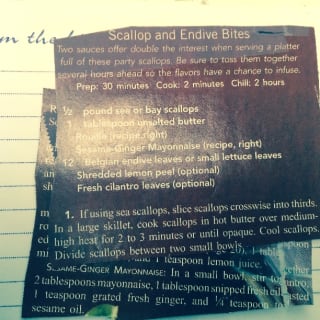 m the
Scallop and Endive Bites
Two sauces offer double the interest when serving a platter
full of these party scallops. Be sure to toss them together
several hours ahead so the flavors have a chance to infuse.
Prep: 30 minutes Cook: 2 minutes Chill: 2 hours
½ pound sea or bay scallops
1 tablespoon unsalted butter
(recipe, right)
Sesame-Ginger Mayonnaise (recipe, right)
12 Belgian endive leaves or small lettuce leaves
Shredded lemon peel (optional)
Fresh cilantro leaves (optional)
1. If using sea scallops, slice scallops crosswise into thirds.
In a large skillet, cook scallops in hot butter over medium-
high heat for 2 to 3 minutes or until opaque. Cool scallops.
Divide scallops between two small bowls.
and 1 teaspoon lemon juice.
SESAME-GINGER MAYONNAISE: In a small bowl, stir together
2 tablespoons mayonnaise, 1 tablespoon snipped fresh cilantro,
1 teaspoon grated fresh ginger, and ¼ teaspoon toasted
sesame oil.